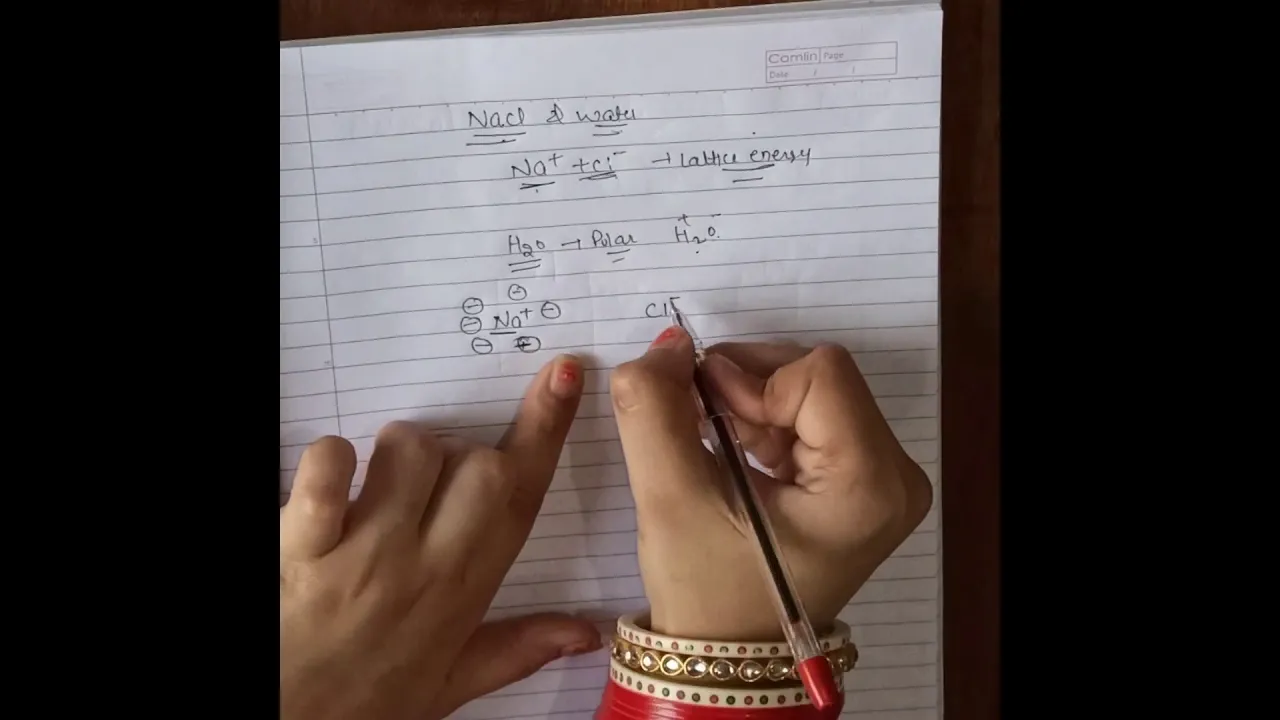 Camlin Page
Date / /
NaCl & water
Na⁺ + Cl⁻ → Lattice energy
H₂O → Polar H₂⁺O⁻
⊖ ⊖
⊖ Na⁺ ⊖ Cl⁻
⊖ ⊖